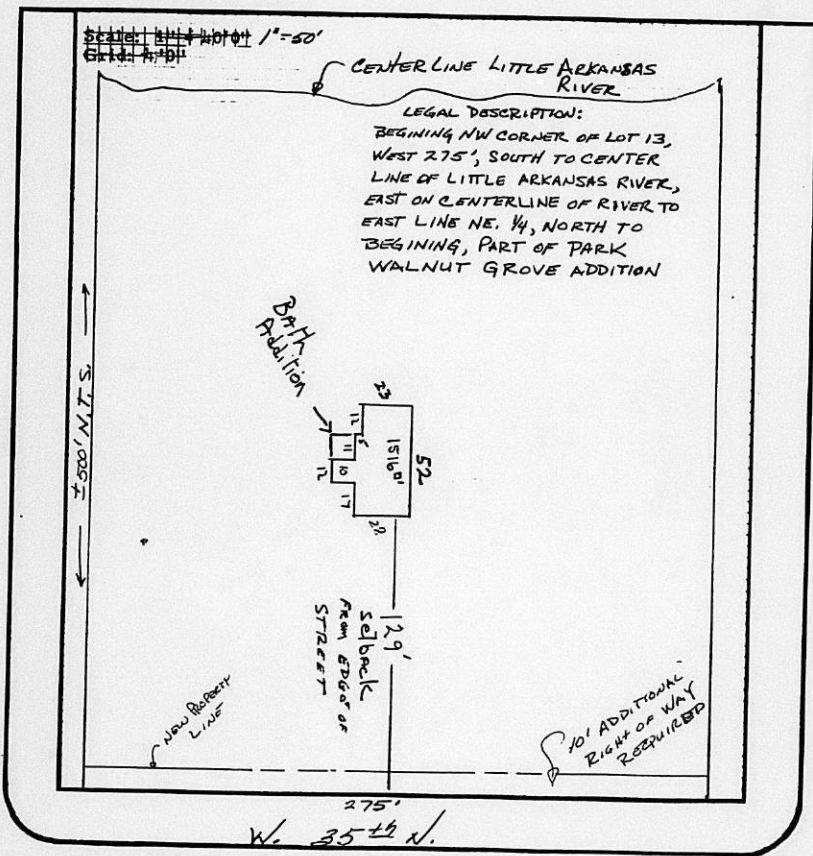 Scale: 1" = 50'
CENTER LINE LITTLE ARKANSAS
RIVER
LEGAL DESCRIPTION:
BEGINING NW CORNER OF LOT 13,
WEST 275', SOUTH TO CENTER
LINE OF LITTLE ARKANSAS RIVER,
EAST ON CENTERLINE OF RIVER TO
EAST LINE NE. 1/4, NORTH TO
BEGINING, PART OF PARK
WALNUT GROVE ADDITION
BATH
Addition
±500' N.T.S.
23
12
5
11
1516 □'
52
12
10
17
29
129'
setback
FROM EDGE OF
STREET
NEW PROPERTY
LINE
10' ADDITIONAL
RIGHT OF WAY
REQUIRED
275'
W. 35th N.